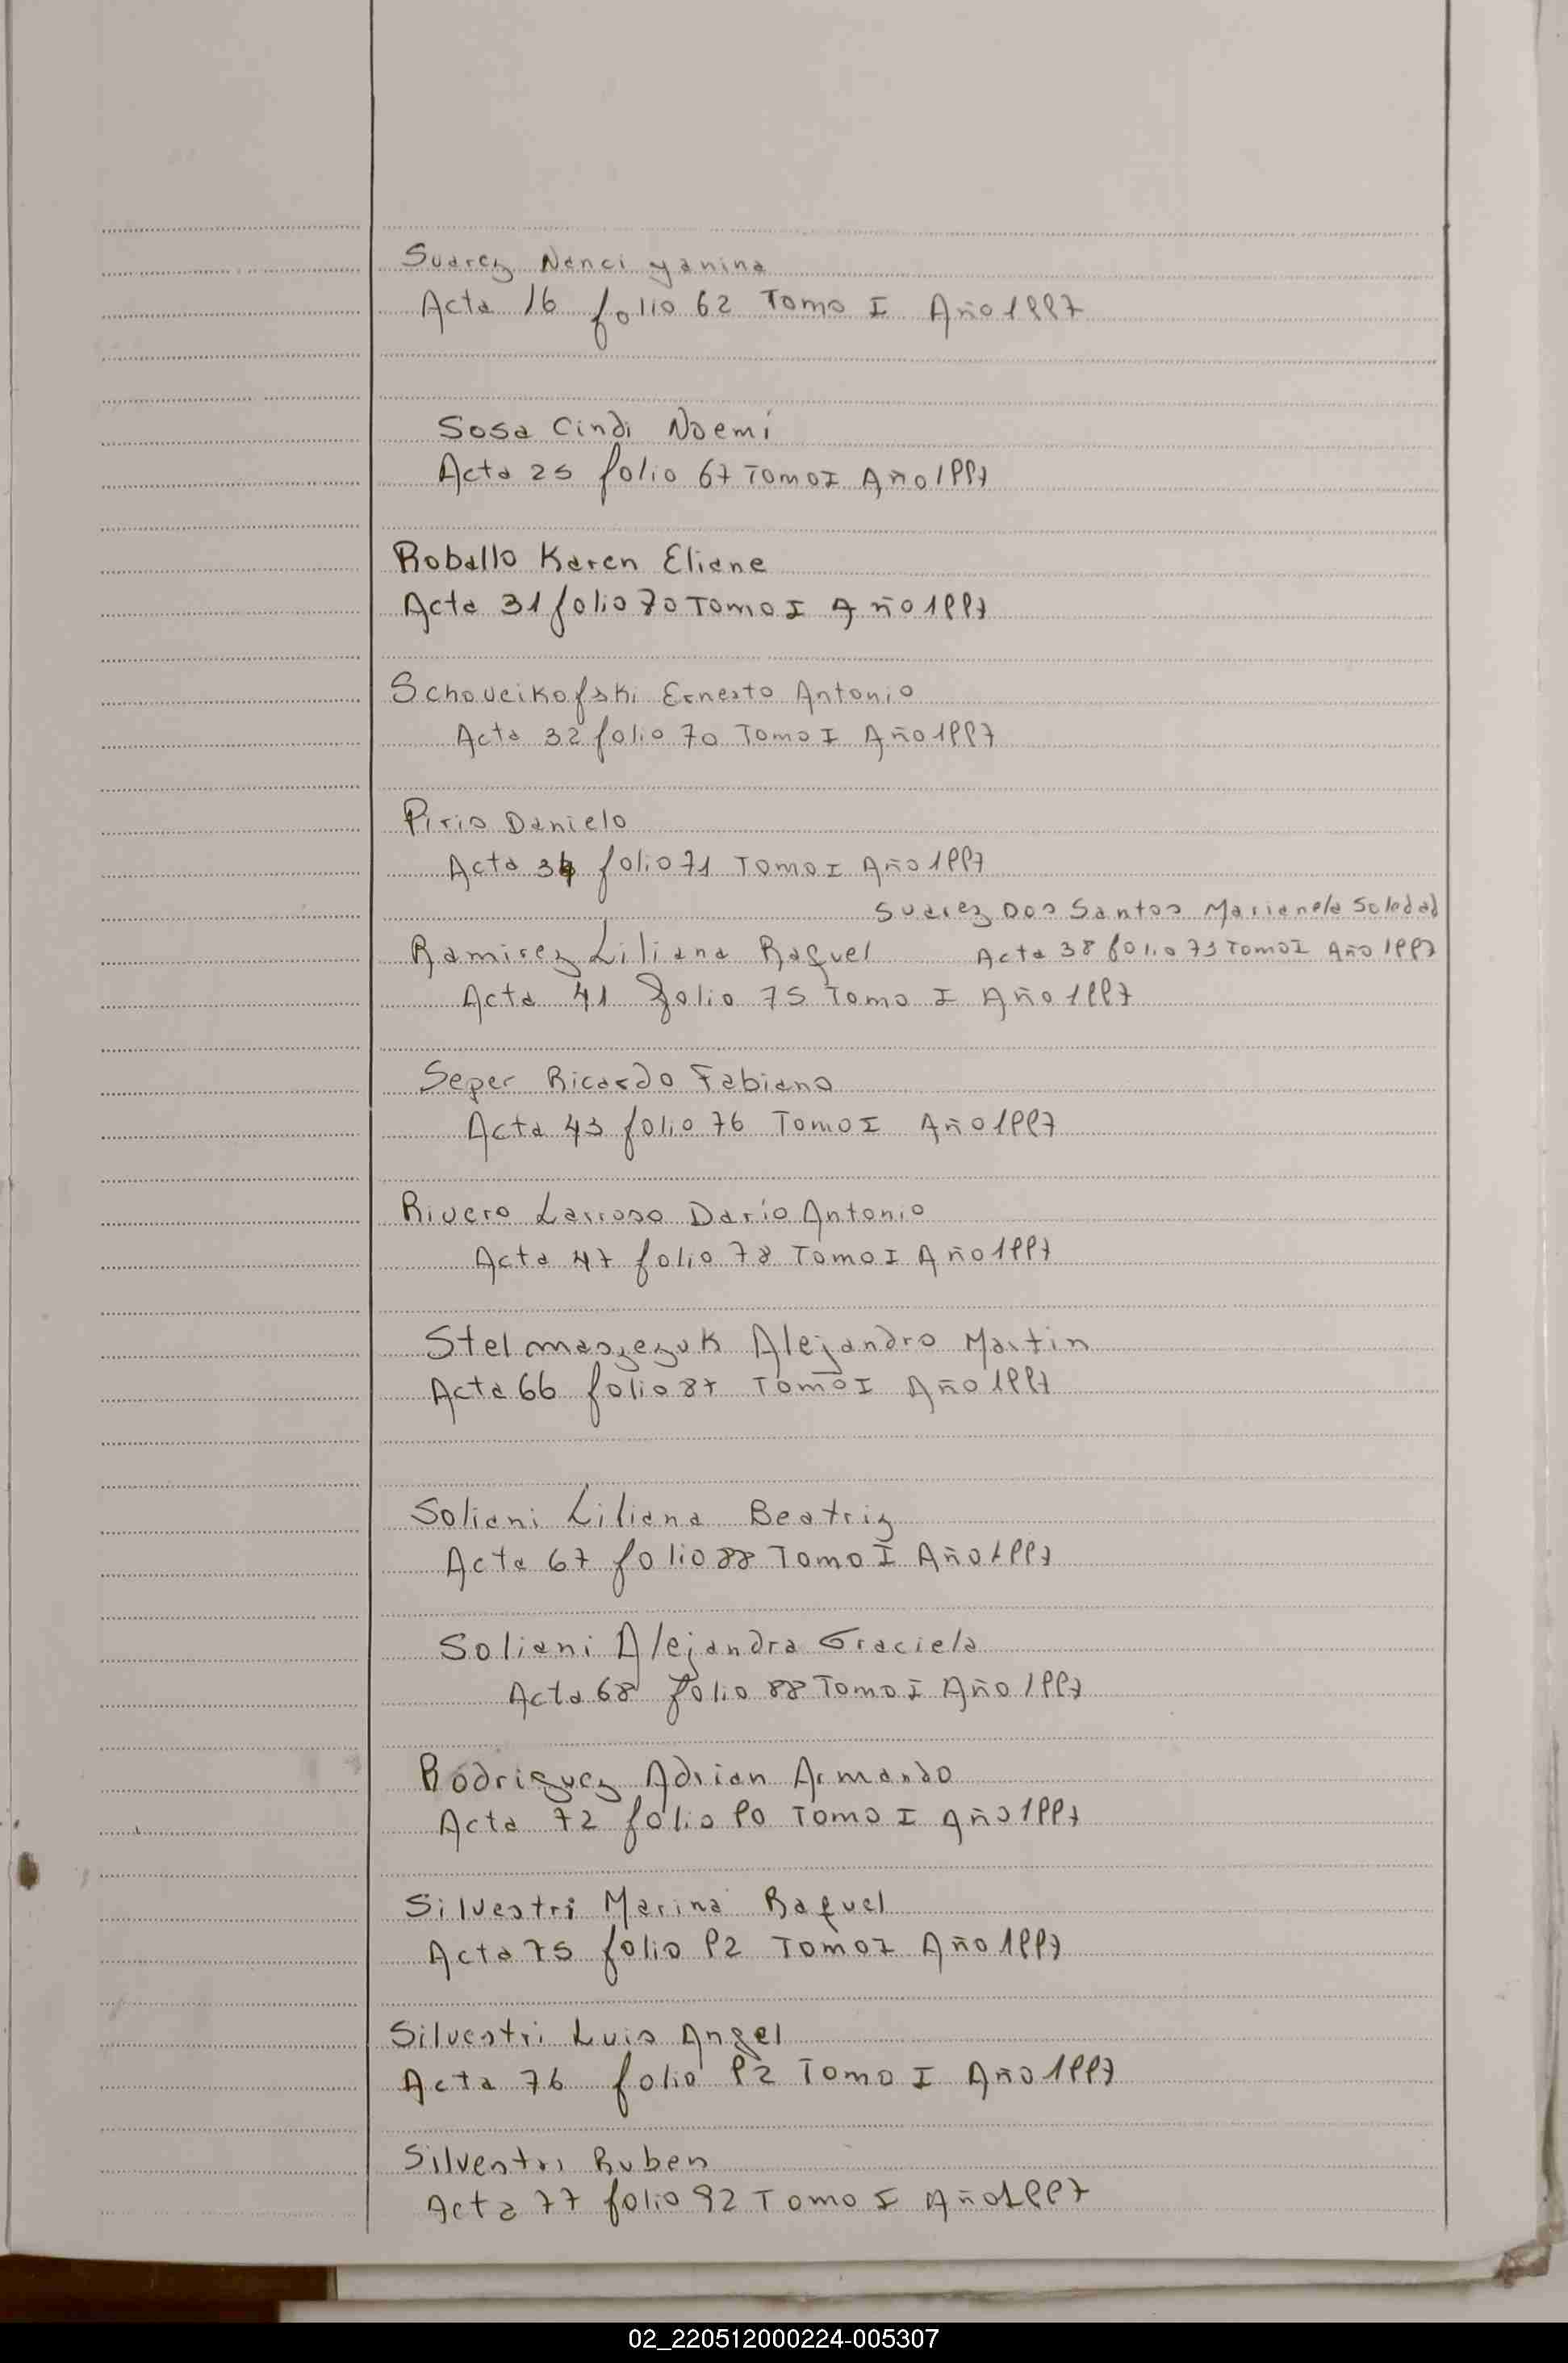 Suarez Nanci yanina
Acta 16 folio 62 Tomo I Año 1997
Sosa Cindi Noemí
Acta 25 folio 67 Tomo I Año 1997
Roballo Karen Eliane
Acta 31 folio 70 Tomo I Año 1997
Schoveikofski Ernesto Antonio
Acta 32 folio 70 Tomo I Año 1997
Pirio Danielo
Acta 34 folio 71 Tomo I Año 1997
Suarez Dos Santos Marianela Soledad
Acta 38 folio 73 Tomo I Año 1997
Ramirez Liliana Raquel
Acta 41 folio 75 Tomo I Año 1997
Seper Ricardo Fabiano
Acta 43 folio 76 Tomo I Año 1997
Rivero Larroso Darío Antonio
Acta 47 folio 78 Tomo I Año 1997
Stelmaszezuk Alejandro Martin
Acta 66 folio 87 Tomo I Año 1997
Soliani Liliana Beatriz
Acta 67 folio 88 Tomo I Año 1997
Soliani Alejandra Graciela
Acta 68 folio 88 Tomo I Año 1997
Rodriguez Adrian Armando
Acta 72 folio 90 Tomo I Año 1997
Silvestri Marina Raquel
Acta 75 folio 92 Tomo I Año 1997
Silvestri Luis Angel
Acta 76 folio 92 Tomo I Año 1997
Silvestri Ruben
Acta 77 folio 92 Tomo I Año 1997
02_220512000224-005307